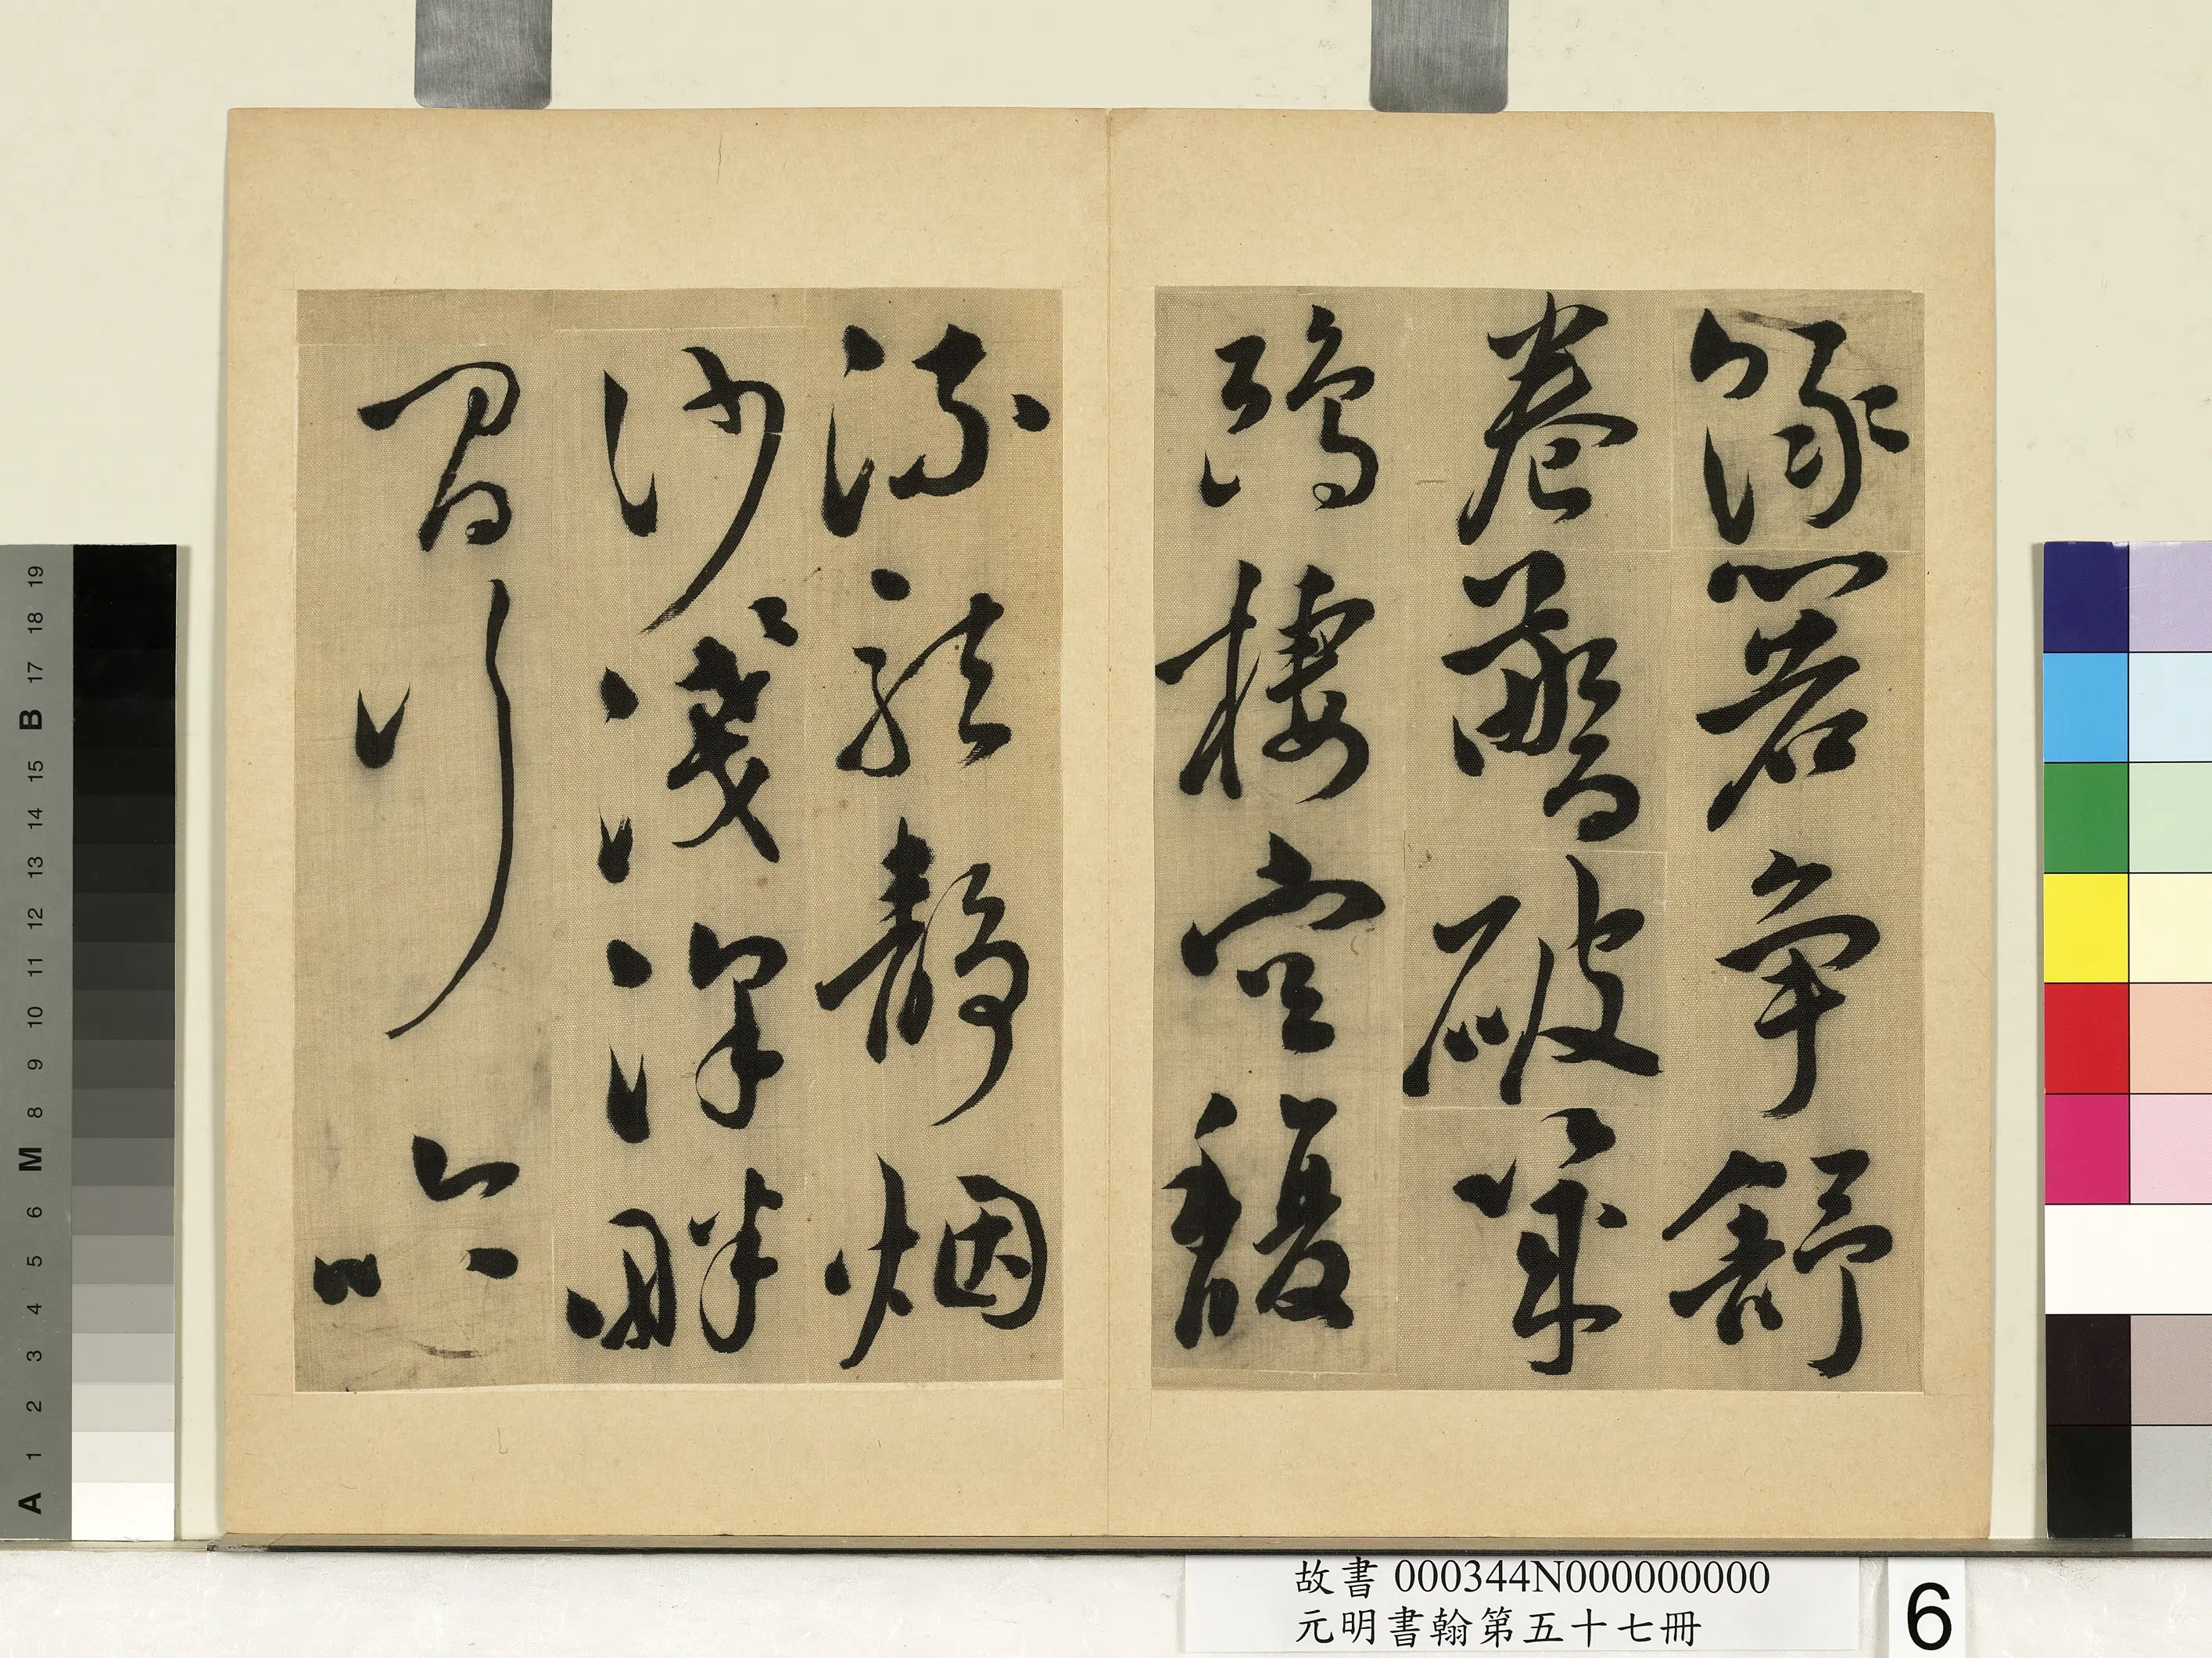 綠箬爭舒
卷破
鴻棲空馥
流靜烟
沙淺深畔
行六
故書 000344N000000000
元明書翰第五十七冊
6
A 1 2 3 4 5 6 M 8 9 10 11 12 13 14 15 B 17 18 19